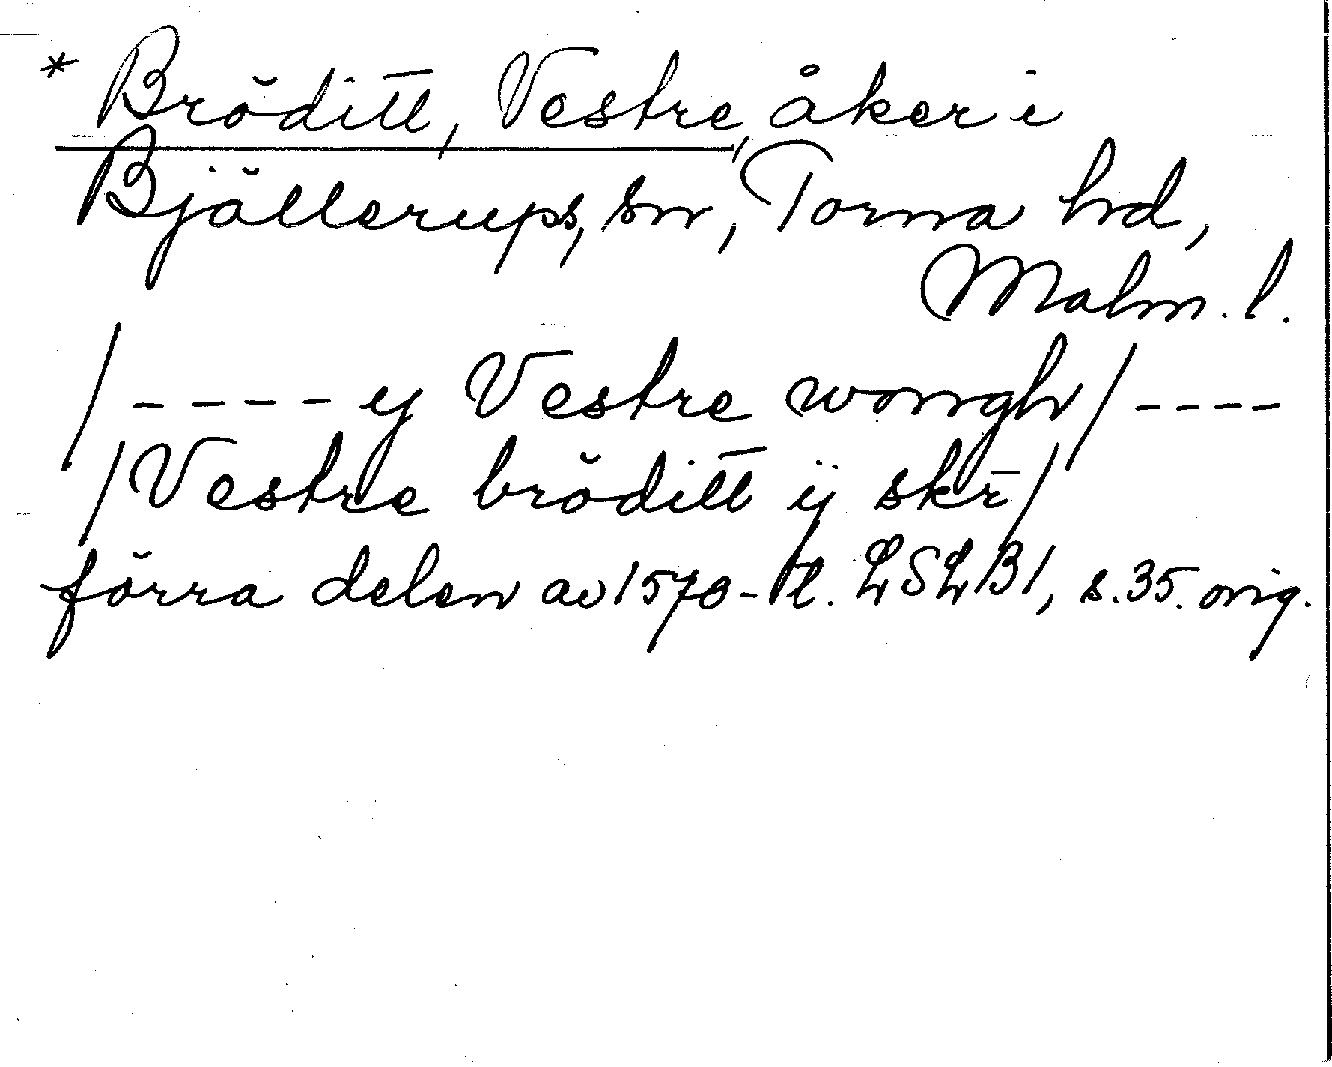 * Bröditt, Vestre, åker i
Bjällerups, sn, Torna hd,
Malm. l.
/ - - - - y Vestre wongh / - - - -
/ Vestre bröditt ij skr̄ /
förra delen av 1570-t. LSLB1, s. 35. orig.